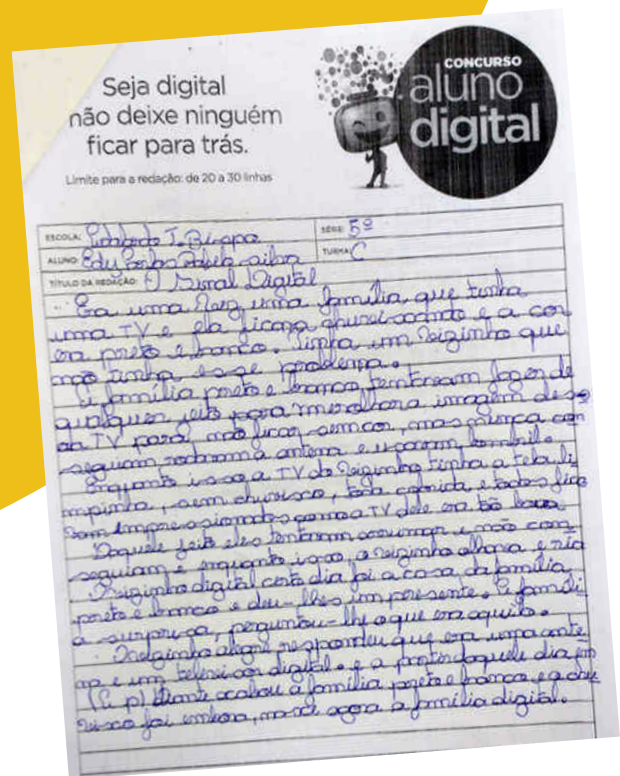 Seja digital
não deixe ninguém
ficar para trás.
Limite para a redação: de 20 a 30 linhas
CONCURSO
aluno
digital
ESCOLA:
SÉRIE: 5º
ALUNO: Edu silva
TURMA: C
TÍTULO DA REDAÇÃO: O Digital
Era uma vez, uma família que tinha
uma TV e ela ficava chuviscando e a cor
era preto e branco. Tinha um vizinho que
não tinha esse problema.
A família preto e branco tentaram fazer de
qualquer jeito para melhora imagem de
da TV para não ficar sem cor, mas nunca con
seguiam, a antena e usaram bombril.
Enquanto isso a TV do vizinho tinha a tela li
mpinha, sem chuvisco, toda colorida e todos fica
vam impressionados como a TV dele era tão boa
Daquele jeito eles tentaram arrumar e não con
seguiam e enquanto isso o vizinho olhava e ria
O vizinho digital certo dia foi a casa da família
preto e branco e deu-lhes um presente. A famíli
a surpresa, perguntou-lhe o que era aquilo.
O vizinho alegre respondeu que era uma ante
na e um digital. e a partir daquele dia em
diante acabou a família preto e branco e a
foi embora, agora a família digital.